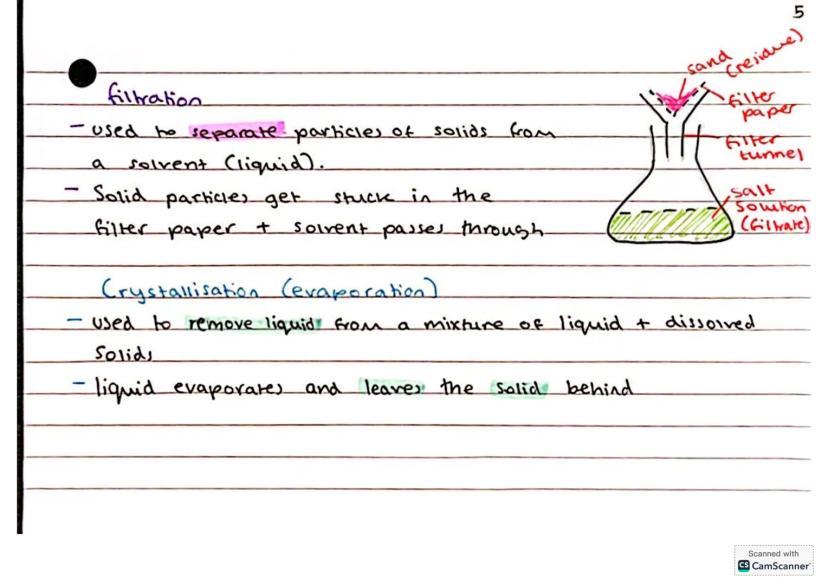 5
filtration
- used to separate particles of solids from
a solvent (liquid).
- Solid particles get stuck in the
filter paper + solvent passes through
sand (residue)
filter
paper
filter
tunnel
salt
solution
(filtrate)
Crystallisation (evaporation)
- used to remove liquid from a mixture of liquid + dissolved
solids
- liquid evaporates and leaves the solid behind
Scanned with
CS CamScanner